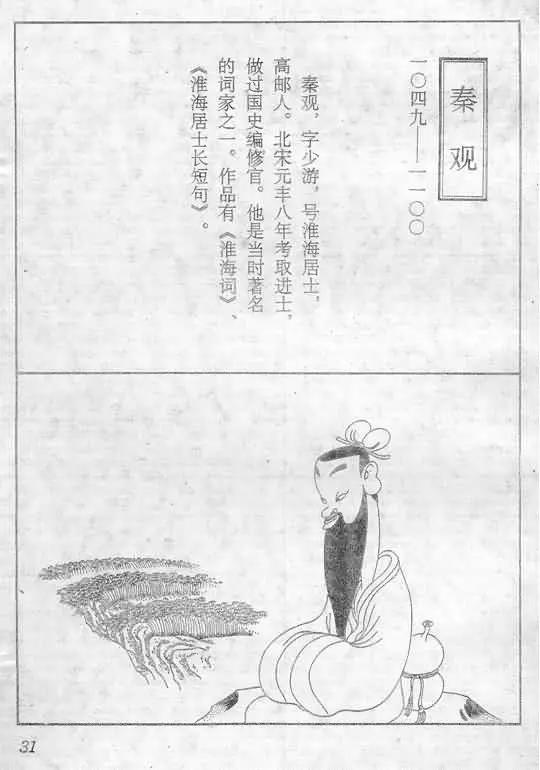 秦观
一〇四九——一一〇〇
秦观，字少游，号淮海居士，
高邮人。北宋元丰八年考取进士，
做过国史编修官。他是当时著名
的词家之一。作品有《淮海词》、
《淮海居士长短句》。
31